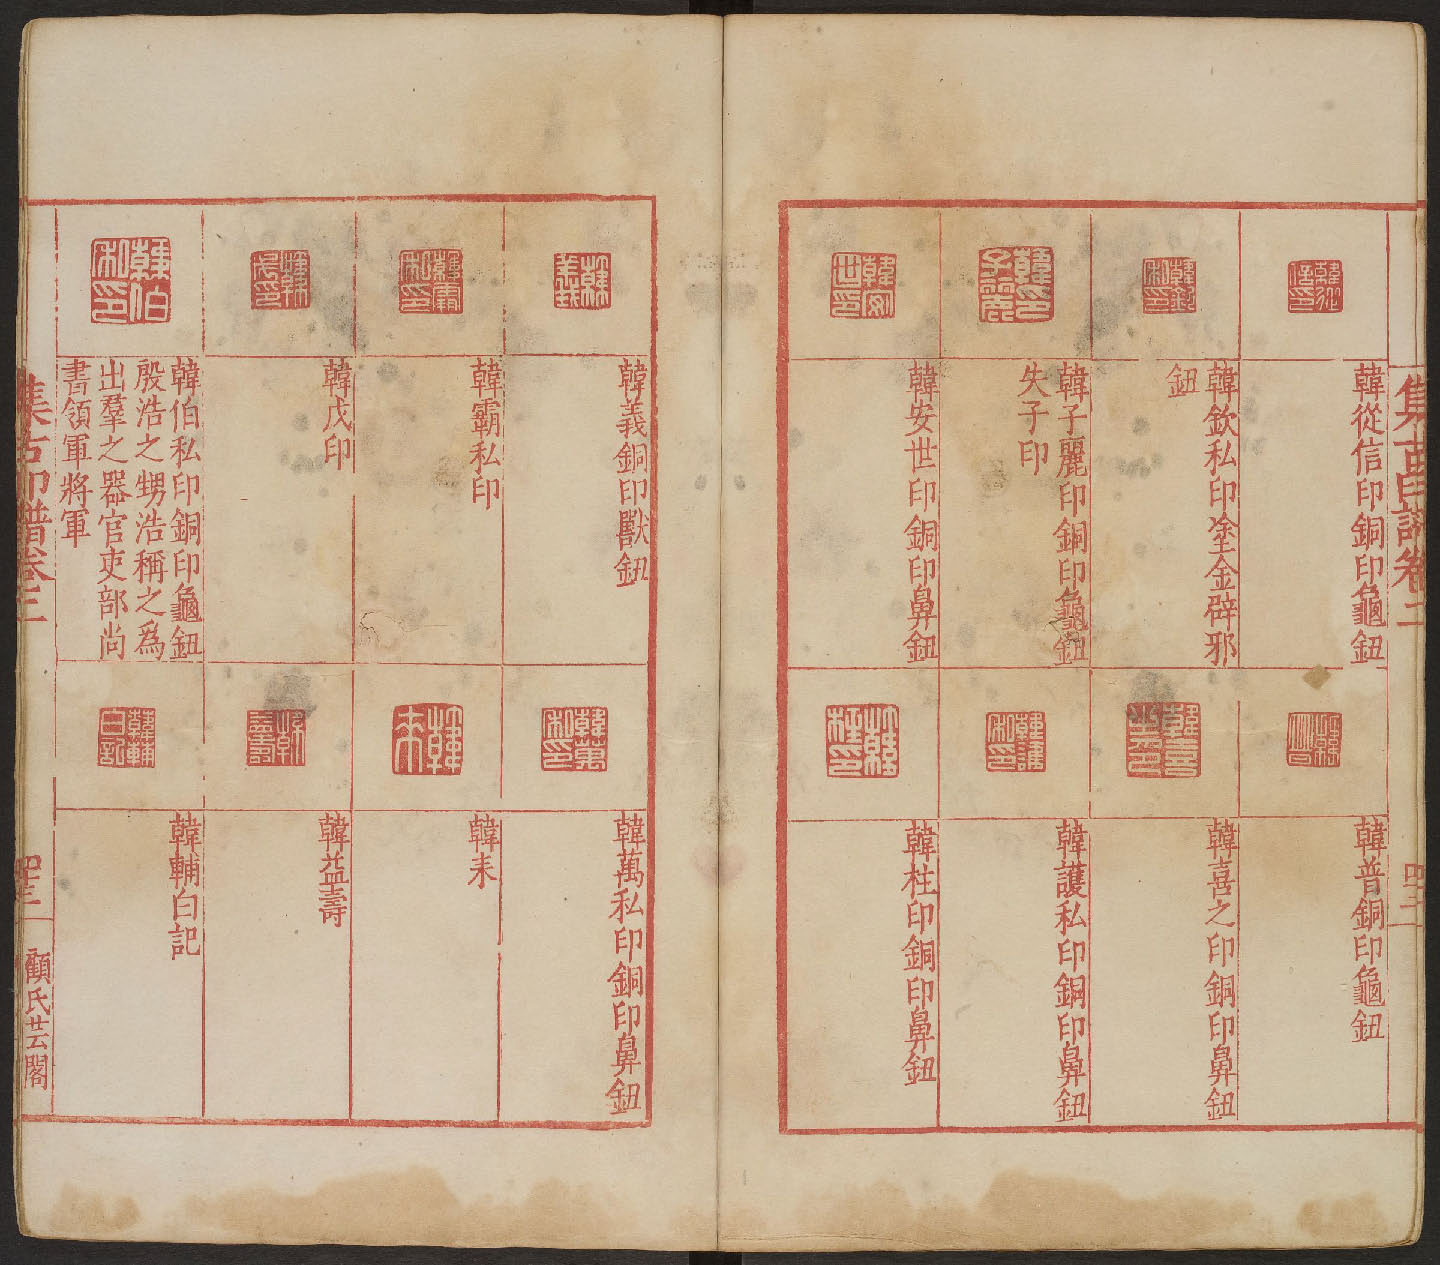 韓從信印銅印龜鈕
韓欽私印塗金辟邪
鈕
韓子麗印銅印龜鈕
失子印
韓安世印銅印鼻鈕
韓普銅印龜鈕
韓喜之印銅印鼻鈕
韓護私印銅印鼻鈕
韓柱印銅印鼻鈕
韓義銅印獸鈕
韓霸私印
韓戊印
韓伯私印銅印龜鈕
殷浩之甥浩稱之爲
出羣之器官吏部尚
書領軍將軍
韓萬私印銅印鼻鈕
韓耒
韓益壽
韓輔白記
集古印譜卷三
顧氏芸閣